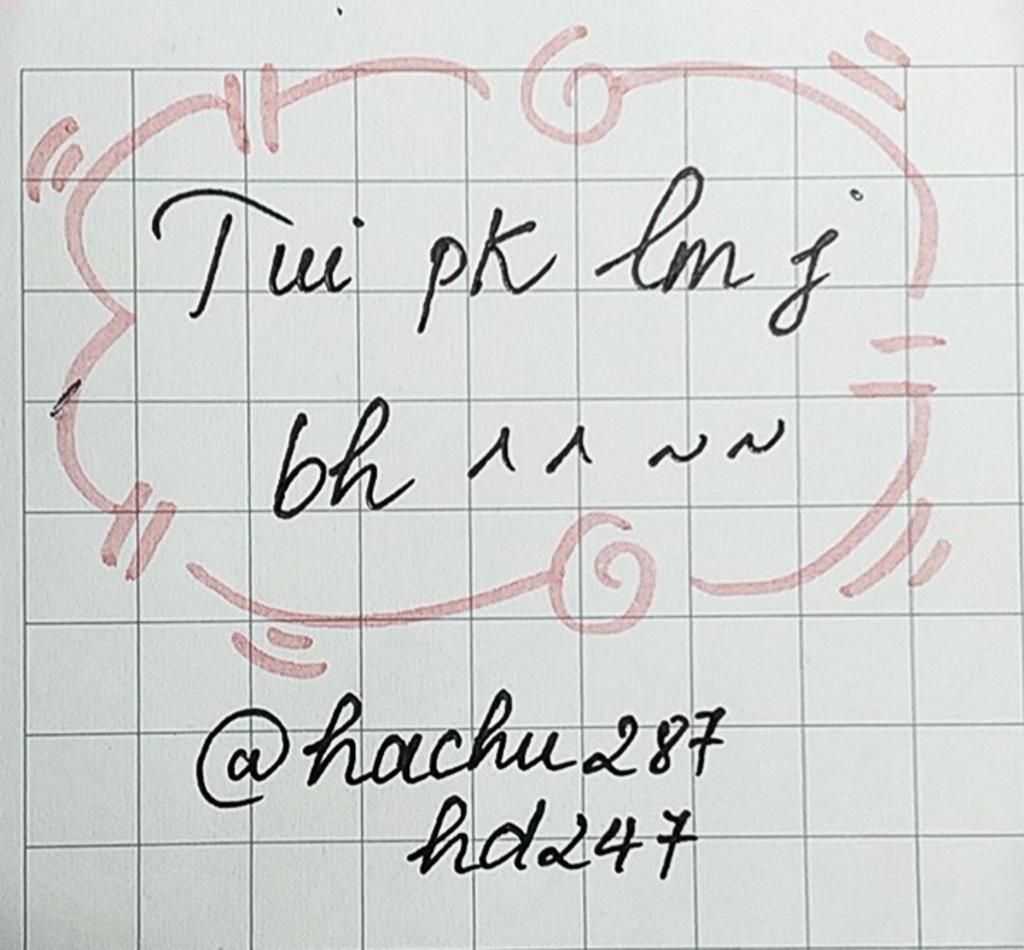 Tui pk lm j
bh ^ ^ ~ ~
@hachu287
hd247